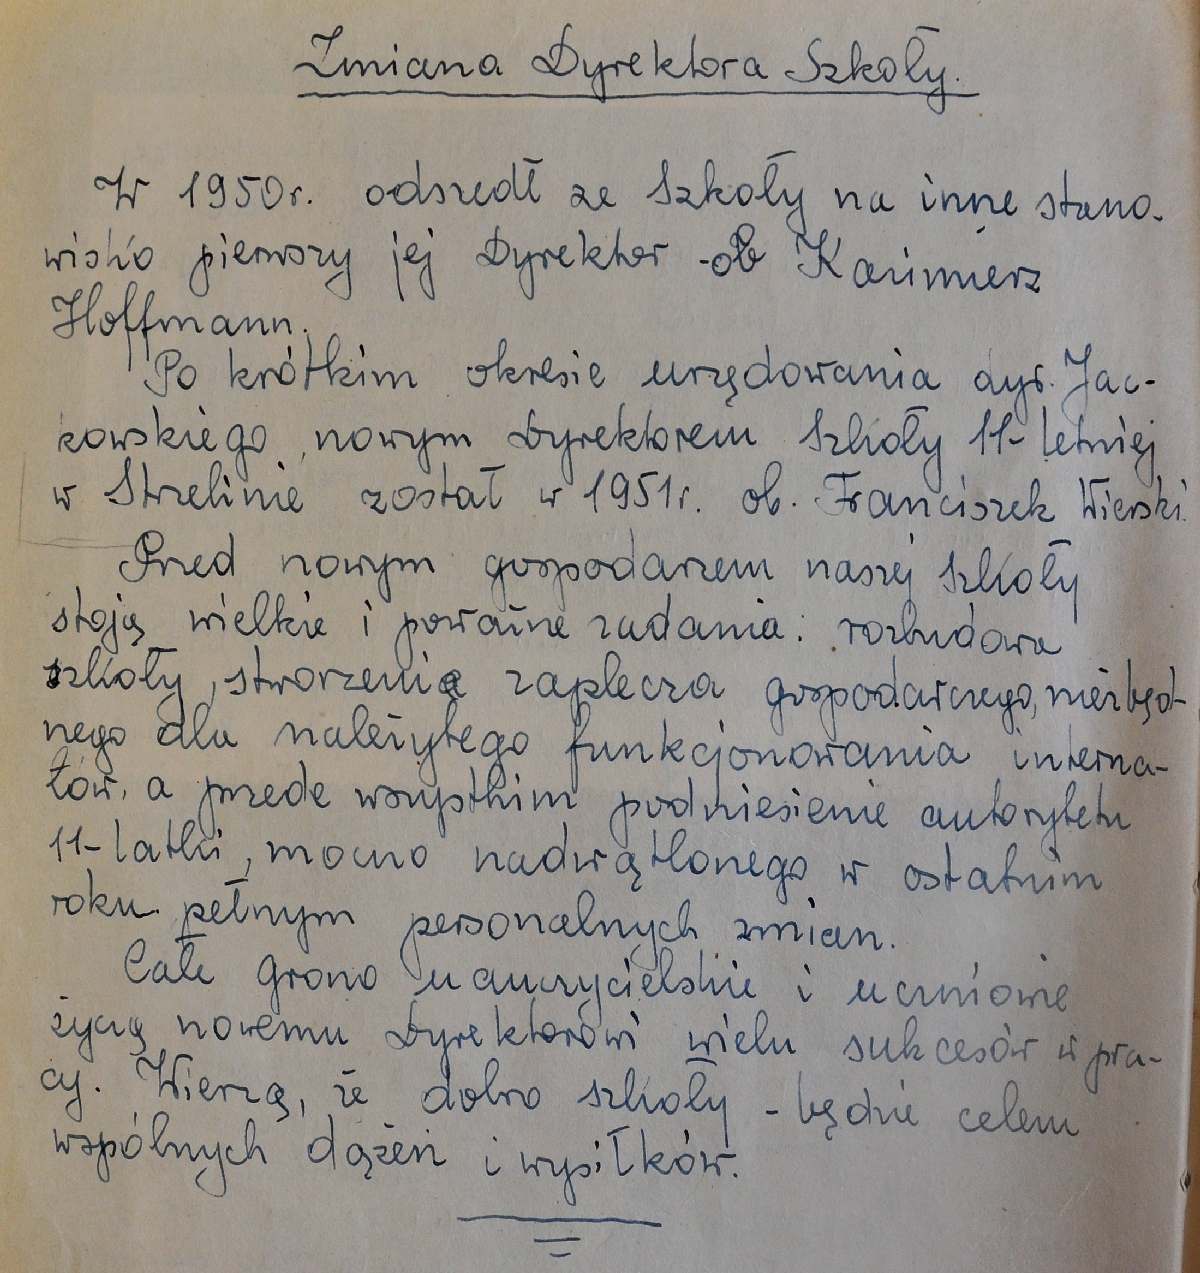 Zmiana Dyrektora Szkoły.
W 1950r. odszedł ze Szkoły na inne stano-
wisko pierwszy jej Dyrektor - ob Kazimierz
Hoffmann.
Po krótkim okresie urzędowania dyr. Jac-
kowskiego, nowym Dyrektorem Szkoły 11-letniej
w Strzelinie został w 1951r. ob. Franciszek Wierski.
Przed nowym gospodarzem naszej szkoły
stoją wielkie i poważne zadania: rozbudowa
szkoły, stworzenie zaplecza gospodarczego, niezbęd-
nego dla należytego funkcjonowania interna-
tów, a przede wszystkim podniesienie autorytetu
11-latki, mocno nadwątlonego w ostatnim
roku pełnym personalnych zmian.
Całe grono nauczycielskie i uczniowie
życzą nowemu Dyrektorowi wielu sukcesów w pra-
cy. Wierzą, że dobro szkoły - będzie celem
wspólnych dążeń i wysiłków.